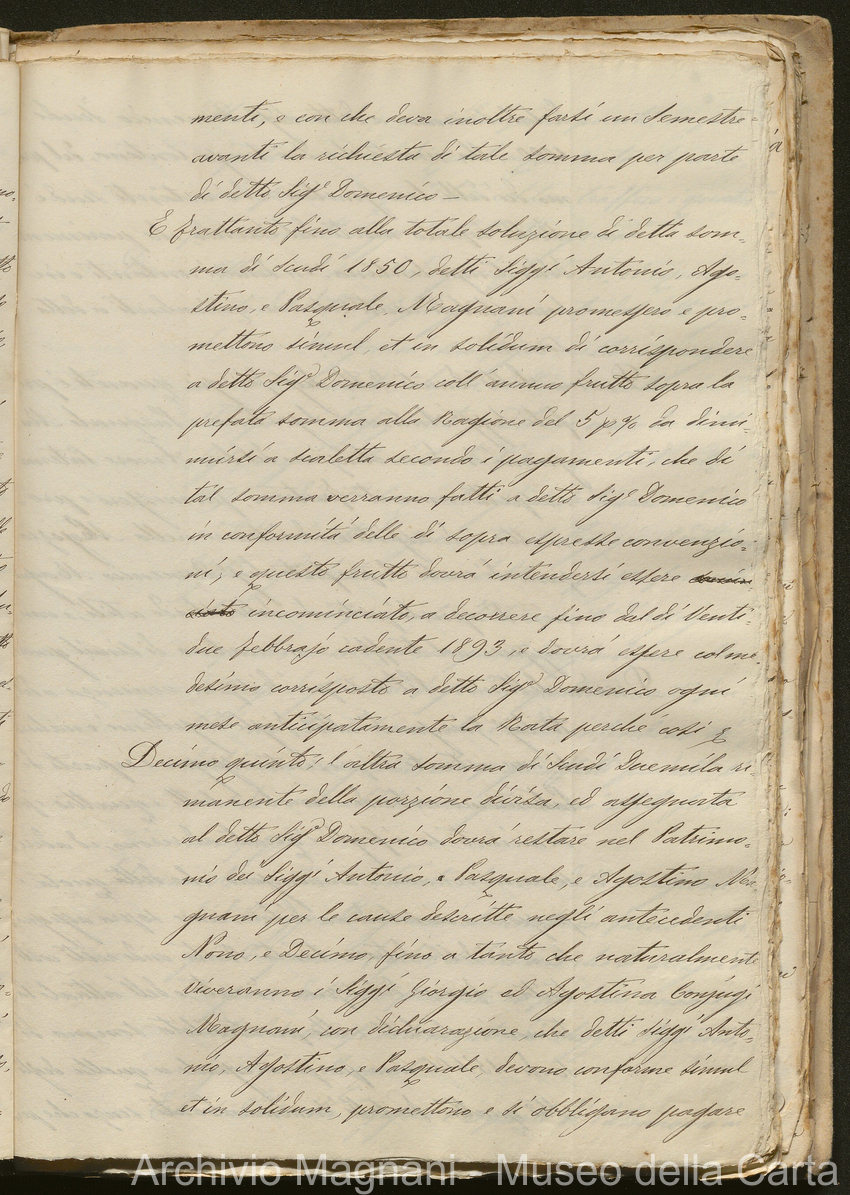 menti, e con che deva inoltre farsi un Semestre-
avanti la richiesta di tale somma per parte
di detto Sig.r Domenico —
E frattanto fino alla totale soluzione di detta som-
ma di Scudi 1850, detti Sigg.i Antonio, Ago-
stino, e Pasquale, Magnani promessero e pro-
mettono simul, et in solidum di corrispondere
a detto Sig.r Domenico coll'annuo frutto sopra la
prefata somma alla Ragione del 5 p% da dimi-
nuirsi a scaletta secondo i pagamenti, che di
tal somma verranno fatti a detto Sig.r Domenico
in conformità delle di sopra espresse convenzio-
ni; e questo frutto dovrà intendersi essere
incominciato, a decorrere fino dal dì Venti-
due febbrajo cadente 1893, e dovrà essere colme
desimo corrisposto a detto Sig.r Domenico ogni
mese anticipatamente la Rata perché così &
Decimo quinto; l'altra somma di Scudi Duemila ri-
manente della porzione divisa, ed assegnata
al detto Sig.r Domenico dovrà restare nel Patrimo-
nio dei Sigg.i Antonio, e Pasquale, e Agostino Ma-
gnani per le cause descritte negli antecedenti
Nono, e Decimo, fino a tanto che naturalmente
viveranno i Sigg.i Giorgio ed Agostina Conjugi
Magnani, con dichiarazione, che detti Sigg.i Anto-
nio, Agostino, e Pasquale, devono conforme simul
et in solidum, promettono e si obbligano pagare
Archivio Magnani - Museo della Carta